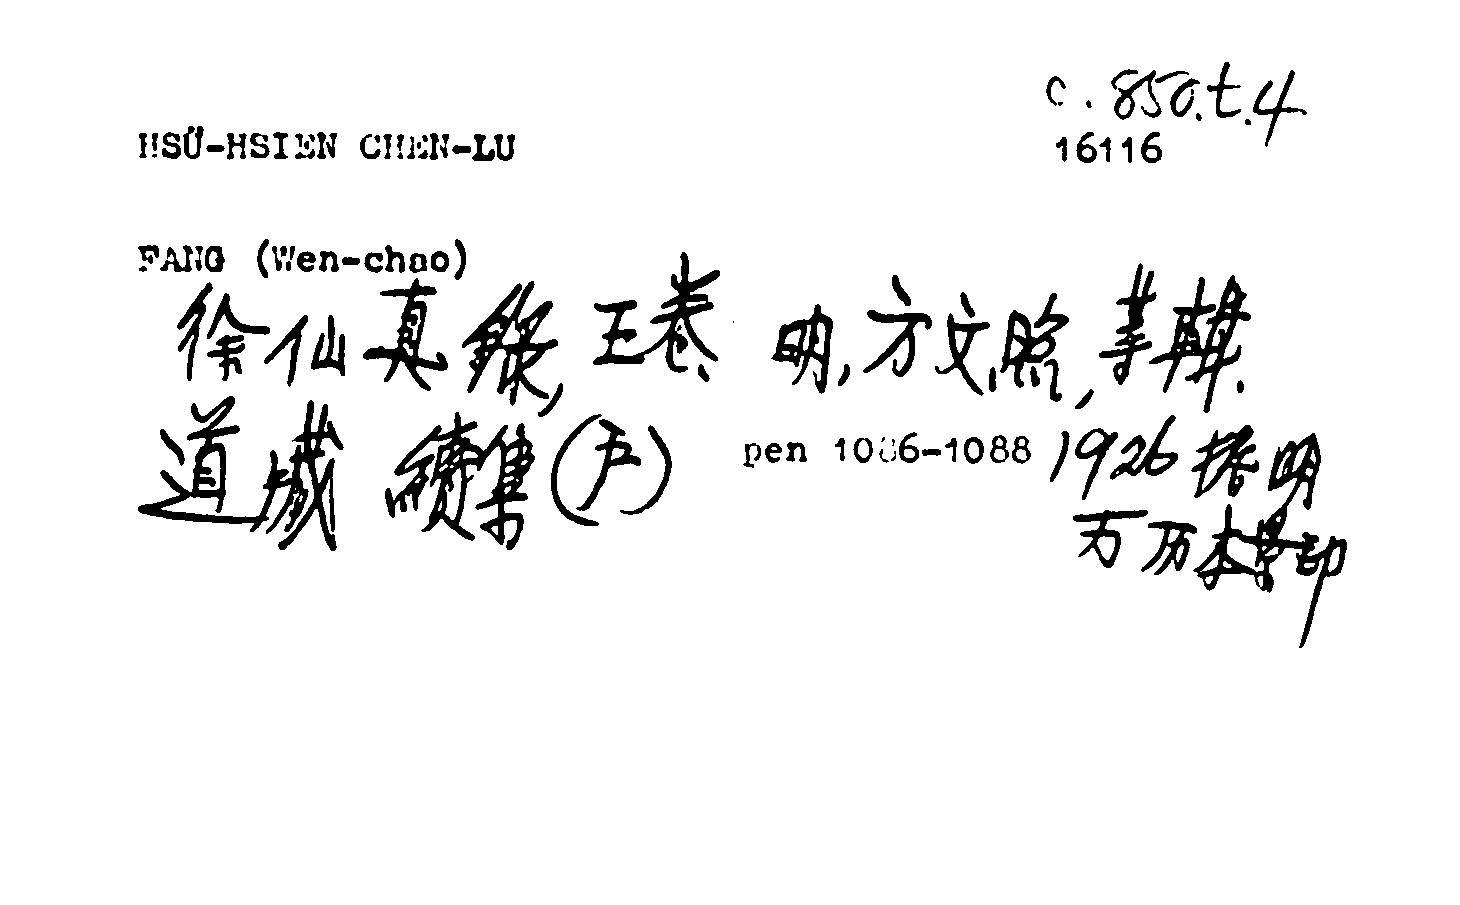 c.850.t.4
HSÜ-HSIEN CHEN-LU 16116
FANG (Wen-chao)
徐仙真錄, 五卷. 明, 方文照, 等輯.
道藏 續集(戶) pen 1086-1088 1926 据明
万历本景印